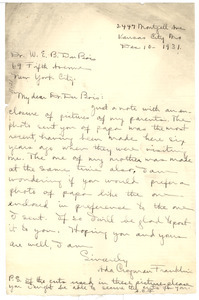 2447 Montgall Ave
Kansas City, Mo
Dec 10 - 1931.
Dr. W. E. B. Du Bois
69 Fifth Avenue
New York City.
My dear Dr. Du Bois:
Just a note with an en-
closure of picture of my parents. The
photo sent you of papa was the most
recent, having been made here six
years ago when they were visiting
me. The one of my mother was made
at the same time also. I am
wondering if you would prefer a
photo of papa like the one
enclosed in preference to the one
I sent. If so I will be glad to send
it to you. Hoping you and yours
are well, I am
Sincerely
Ida Chapman Franklin
P.S. If the cuts made in these pictures please
you I might be able to secure the